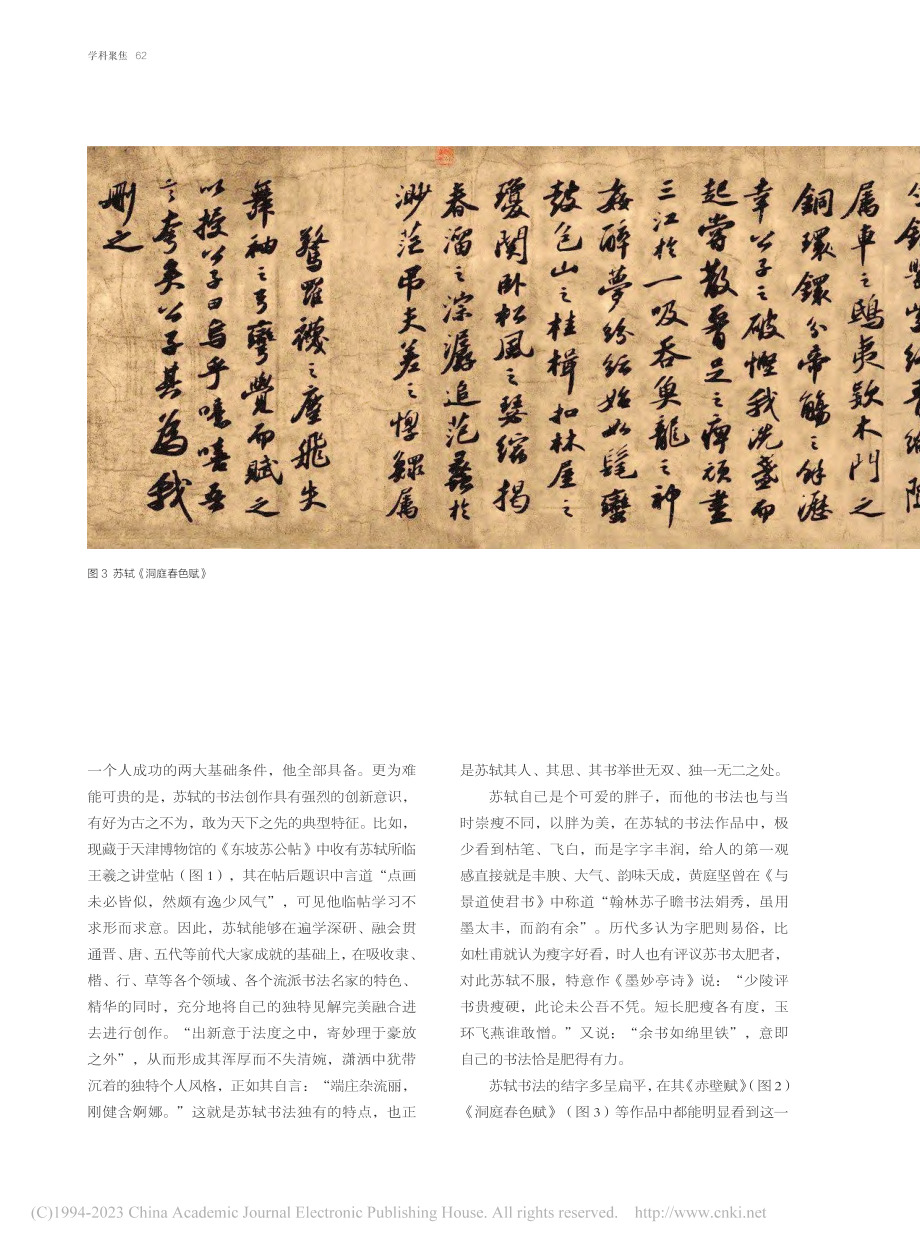 学科聚焦 62
属車之鴟夷款木門之
銅環鐶分帝觴之餘瀝
幸公子之破慳我洗盞而
起嘗散腰足之痹頑盡
三江於一吸吞魚龍之神
姦醉夢紛紜始如髦蠻
鼓包山之桂楫扣林屋之
瓊関卧松風之瑟縮揭
春溜之淙潺追范蠡於
渺茫弔夫差之惸鰥属
驚羅襪之塵飛失
舞袖之弓彎覺而賦之
以授公子曰烏乎噫嘻吾
言夸矣公子其為我
刪之
图 3 苏轼《洞庭春色赋》
一个人成功的两大基础条件，他全部具备。更为难
能可贵的是，苏轼的书法创作具有强烈的创新意识，
有好为古之不为，敢为天下之先的典型特征。比如，
现藏于天津博物馆的《东坡苏公帖》中收有苏轼所临
王羲之讲堂帖（图 1），其在帖后题识中言道“点画
未必皆似，然颇有逸少风气”，可见他临帖学习不
求形而求意。因此，苏轼能够在遍学深研、融会贯
通晋、唐、五代等前代大家成就的基础上，在吸收隶、
楷、行、草等各个领域、各个流派书法名家的特色、
精华的同时，充分地将自己的独特见解完美融合进
去进行创作。“出新意于法度之中，寄妙理于豪放
之外”，从而形成其浑厚而不失清婉，潇洒中犹带
沉着的独特个人风格，正如其自言：“端庄杂流丽，
刚健含婀娜。”这就是苏轼书法独有的特点，也正
是苏轼其人、其思、其书举世无双、独一无二之处。
苏轼自己是个可爱的胖子，而他的书法也与当
时崇瘦不同，以胖为美，在苏轼的书法作品中，极
少看到枯笔、飞白，而是字字丰润，给人的第一观
感直接就是丰腴、大气、韵味天成，黄庭坚曾在《与
景道使君书》中称道“翰林苏子瞻书法娟秀，虽用
墨太丰，而韵有余”。历代多认为字肥则易俗，比
如杜甫就认为瘦字好看，时人也有评议苏书太肥者，
对此苏轼不服，特意作《墨妙亭诗》说：“少陵评
书贵瘦硬，此论未公吾不凭。短长肥瘦各有度，玉
环飞燕谁敢憎。”又说：“余书如绵里铁”，意即
自己的书法恰是肥得有力。
苏轼书法的结字多呈扁平，在其《赤壁赋》（图 2）
《洞庭春色赋》（图 3）等作品中都能明显看到这一
(C)1994-2023 China Academic Journal Electronic Publishing House. All rights reserved. http://www.cnki.net